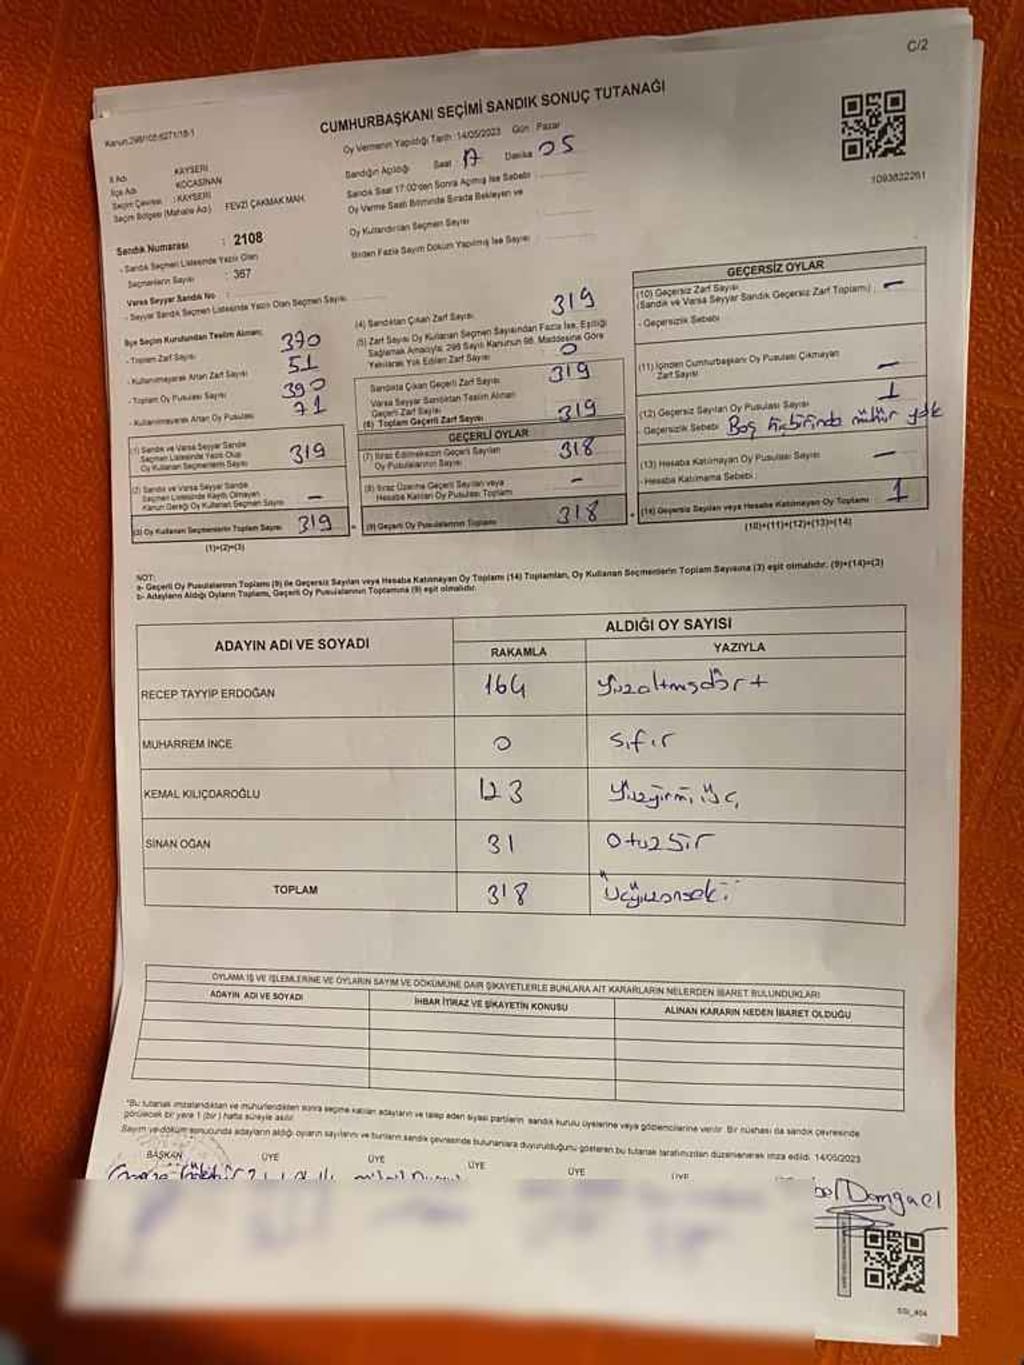 C/2
Kanun:298/105-6271/18-1
CUMHURBAŞKANI SEÇİMİ SANDIK SONUÇ TUTANAĞI
Oy Vermenin Yapıldığı Tarih :14/05/2023 Gün : Pazar
Sandığın Açıldığı Saat : 17 Dakika : 05
Sandık Saat 17:00'den Sonra Açılmış İse Sebebi :
Oy Verme Saati Bitiminde Sırada Bekleyen ve
Oy Kullandırılan Seçmen Sayısı :
Birden Fazla Sayım Döküm Yapılmış İse Sayısı :
1093822261
İl Adı : KAYSERİ
İlçe Adı : KOCASİNAN
Seçim Çevresi : KAYSERİ
Seçim Bölgesi (Mahalle Adı) : FEVZİ ÇAKMAK MAH.
Sandık Numarası : 2108
- Sandık Seçmen Listesinde Yazılı Olan
Seçmenlerin Sayısı : 367
Varsa Seyyar Sandık No :
- Seyyar Sandık Seçmen Listesinde Yazılı Olan Seçmen Sayısı :
İlçe Seçim Kurulundan Teslim Alınan;
- Toplam Zarf Sayısı : 370
- Kullanılmayarak Artan Zarf Sayısı : 51
- Toplam Oy Pusulası Sayısı : 390
- Kullanılmayarak Artan Oy Pusulası : 71
(1) Sandık ve Varsa Seyyar Sandık
Seçmen Listesinde Yazılı Olup
Oy Kullanan Seçmenlerin Sayısı 319
(2) Sandık ve Varsa Seyyar Sandık
Seçmen Listesinde Kayıtlı Olmayan
Kanun Gereği Oy Kullanan Seçmen Sayısı –
(3) Oy Kullanan Seçmenlerin Toplam Sayısı 319
(1)+(2)=(3)
(4) Sandıktan Çıkan Zarf Sayısı 319
(5) Zarf Sayısı Oy Kullanan Seçmen Sayısından Fazla İse, Eşitliği
Sağlamak Amacıyla; 298 Sayılı Kanunun 98. Maddesine Göre
Yakılarak Yok Edilen Zarf Sayısı 0
Sandıkta Çıkan Geçerli Zarf Sayısı 319
Varsa Seyyar Sandıktan Teslim Alınan
Geçerli Zarf Sayısı
(6) Toplam Geçerli Zarf Sayısı 319
GEÇERLİ OYLAR
(7) İtiraz Edilmeksizin Geçerli Sayılan
Oy Pusulalarının Sayısı 318
(8) İtiraz Üzerine Geçerli Sayılan veya
Hesaba Katılan Oy Pusulası Toplamı –
(9) Geçerli Oy Pusulalarının Toplamı 318
GEÇERSİZ OYLAR
(10) Geçersiz Zarf Sayısı
(Sandık ve Varsa Seyyar Sandık Geçersiz Zarf Toplamı) : –
- Geçersizlik Sebebi :
(11) İçinden Cumhurbaşkanı Oy Pusulası Çıkmayan
Zarf Sayısı –
(12) Geçersiz Sayılan Oy Pusulası Sayısı : 1
- Geçersizlik Sebebi : Boş hiçbirinde mühür yok
(13) Hesaba Katılmayan Oy Pusulası Sayısı : –
- Hesaba Katılmama Sebebi :
(14) Geçersiz Sayılan veya Hesaba Katılmayan Oy Toplamı 1
(10)+(11)+(12)+(13)=(14)
NOT:
a- Geçerli Oy Pusulalarının Toplamı (9) ile Geçersiz Sayılan veya Hesaba Katılmayan Oy Toplamı (14) Toplamları, Oy Kullanan Seçmenlerin Toplam Sayısına (3) eşit olmalıdır. (9)+(14)=(3)
b- Adayların Aldığı Oyların Toplamı, Geçerli Oy Pusulalarının Toplamına (9) eşit olmalıdır.
ADAYIN ADI VE SOYADI ALDIĞI OY SAYISI
RAKAMLA YAZIYLA
RECEP TAYYIP ERDOĞAN 164 Yüzaltmışdört
MUHARREM İNCE 0 sıfır
KEMAL KILIÇDAROĞLU 123 Yüzyirmi üç
SİNAN OĞAN 31 Otuzbir
TOPLAM 318 Üçyüzonseki
OYLAMA İŞ VE İŞLEMLERİNE VE OYLARIN SAYIM VE DÖKÜMÜNE DAİR ŞİKAYETLERLE BUNLARA AİT KARARLARIN NELERDEN İBARET BULUNDUKLARI
ADAYIN ADI VE SOYADI İHBAR İTİRAZ VE ŞİKAYETİN KONUSU ALINAN KARARIN NEDEN İBARET OLDUĞU
*Bu tutanak imzalandıktan ve mühürlendikten sonra seçime katılan adayların ve talep eden siyasi partilerin sandık kurulu üyelerine veya gözlemcilerine verilir. Bir nüshası da sandık çevresinde
görülecek bir yere 1 (bir) hafta süreyle asılır.
Sayım ve döküm sonucunda adayların aldığı oyların sayılarını ve bunların sandık çevresinde bulunanlara duyurulduğunu gösteren bu tutanak tarafımızdan düzenlenerek imza edildi. 14/05/2023
BAŞKAN ÜYE ÜYE ÜYE ÜYE ÜYE